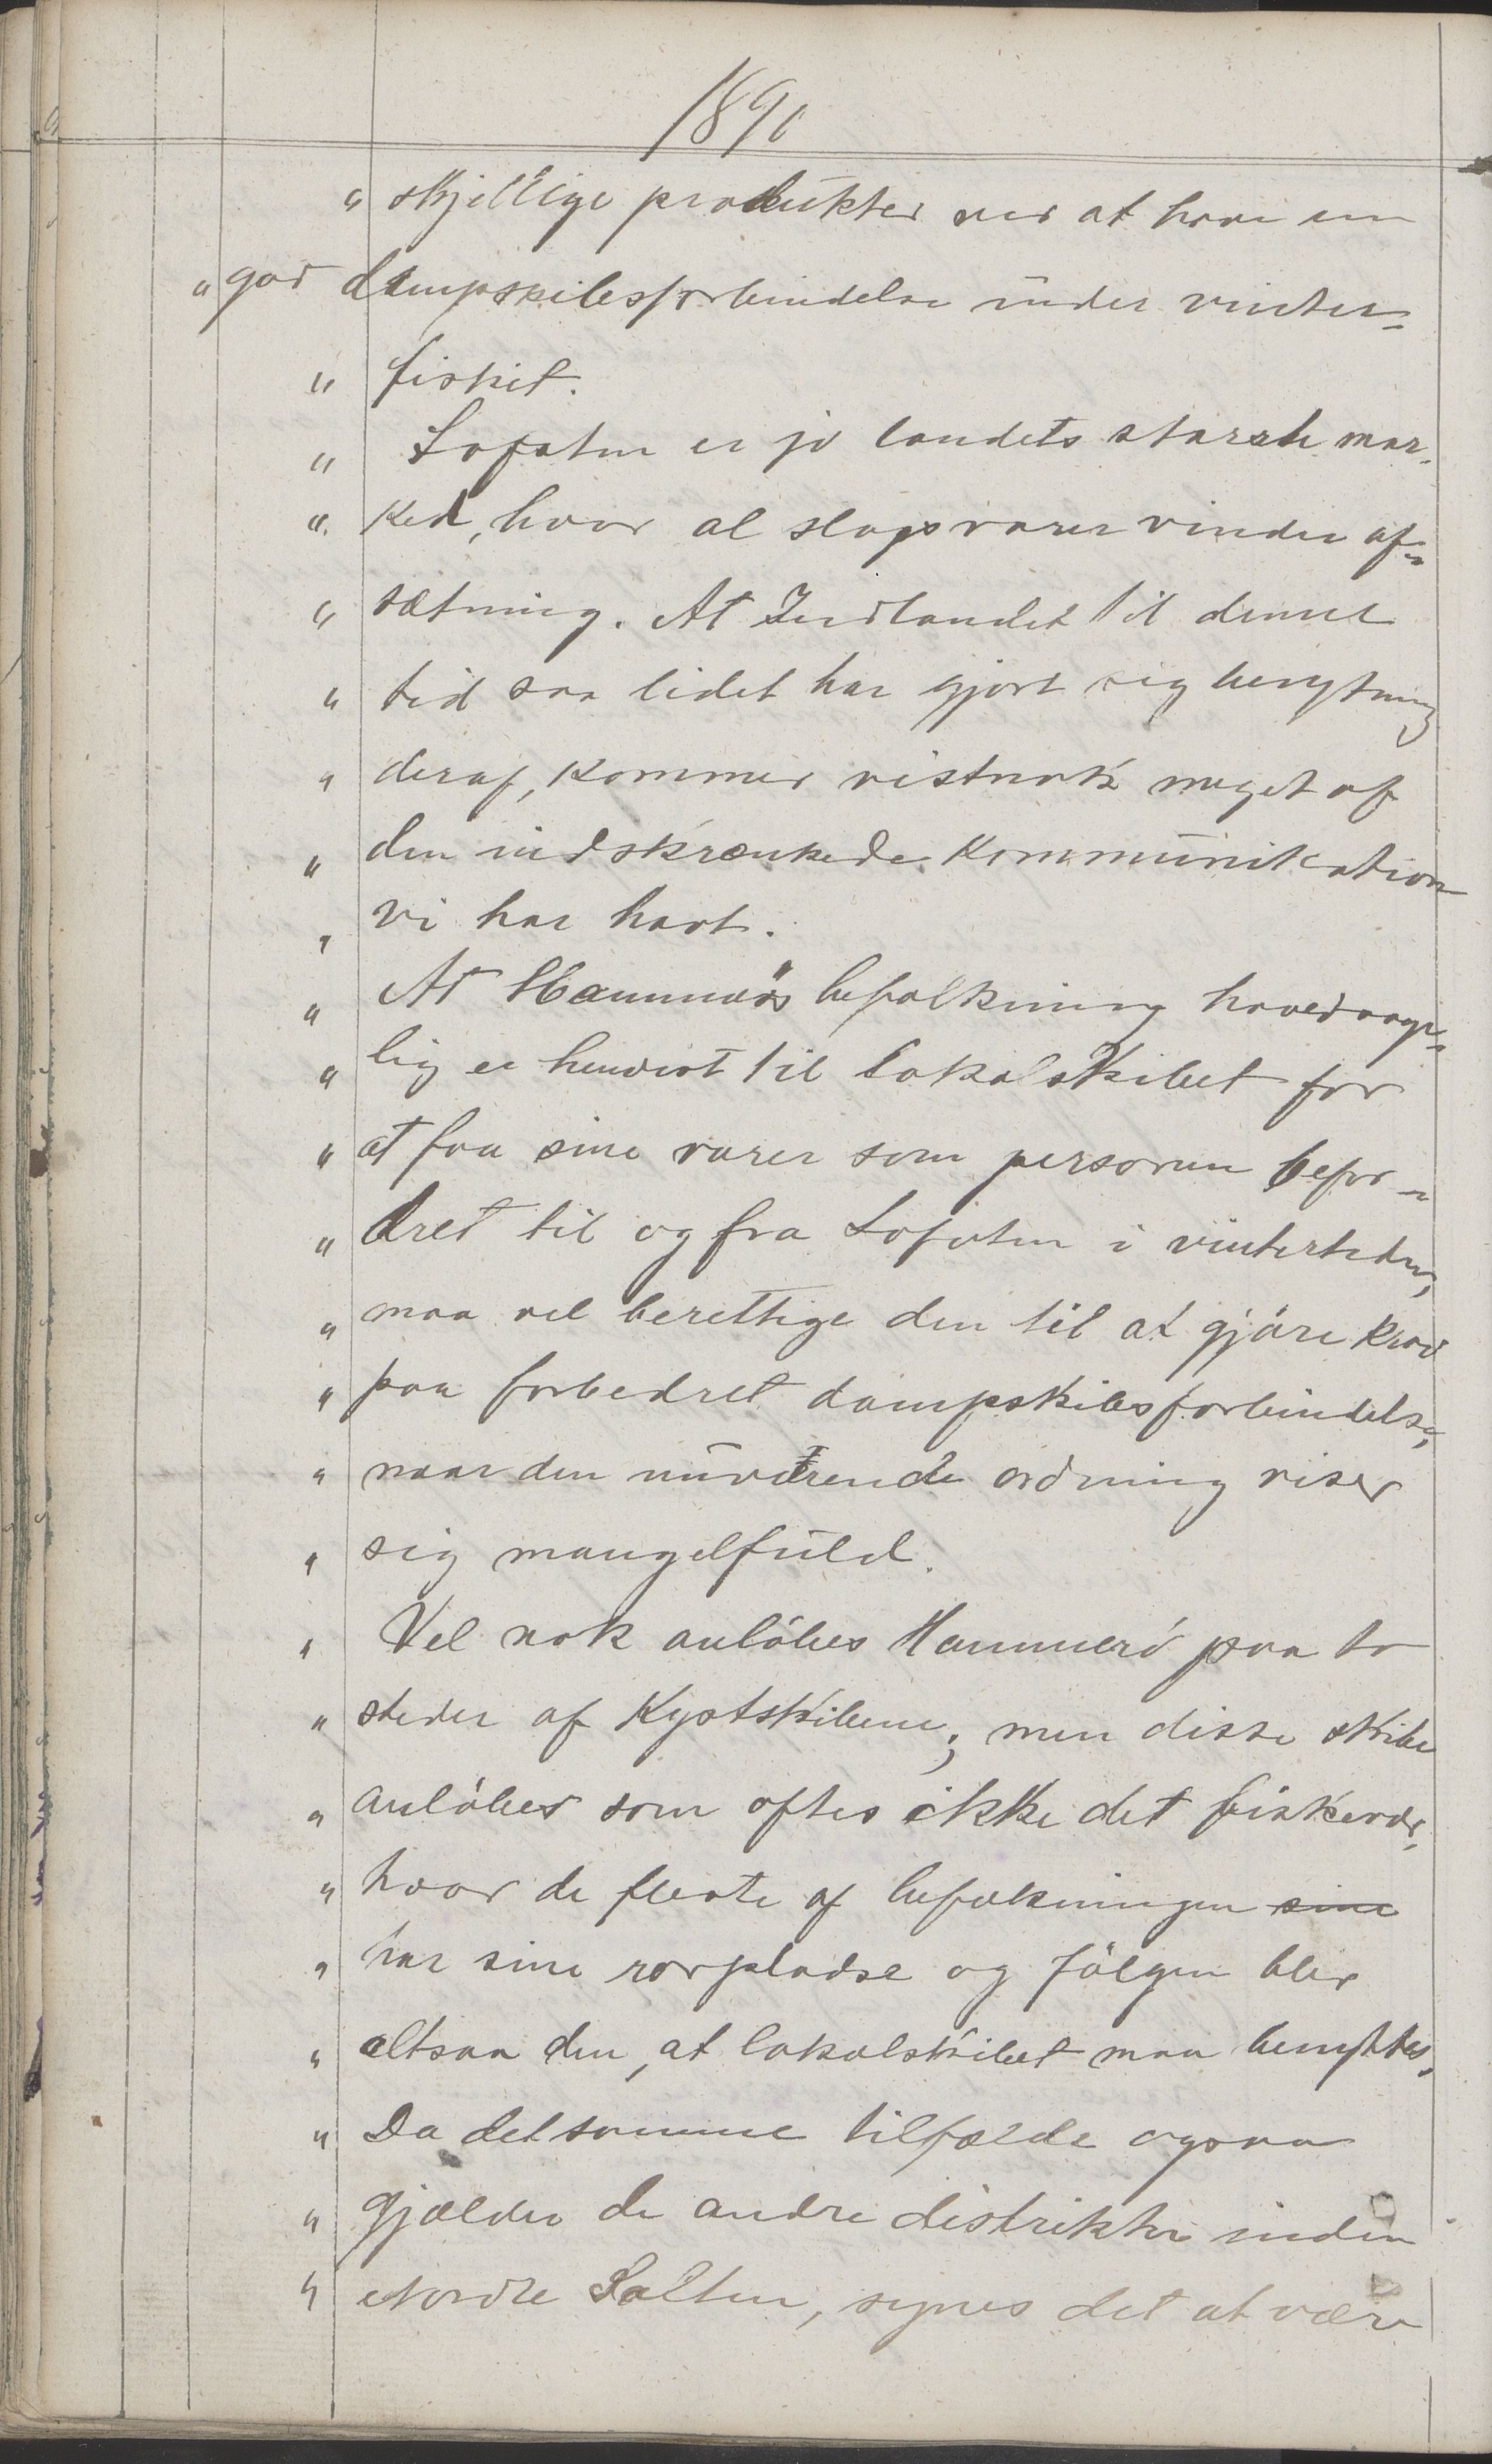 1890
" skjellige produkter ved at have en
" god dampskibsforbindelse under vinter=
" fisket.
" Lofoten er jo landets største mar-
" ked, hvor al slags varer vinder af=
" sætning. At Indlandet til denne
" tid saa lidet har gjort sig benytning
" deraf, kommer vistnok meget af
" den indskrænkede kommunikation
" vi har havt.
" At Hammerøs befolkning hovedsage=
" lig er henvist til lokalskibet for
" at faa sine varer som personer befor=
" dret til og fra Lofoten i vintertiden,
" maa vel berettige den til at gjøre krav
" paa forbedret dampskibsforbindelse,
" naar den nuværende ordning viser
" sig mangelfuld.
" Vel nok anløbes Hammerø paa to
" steder af Kystskibene; men disse skibe
" anløber som oftes ikke det fiskevær,
" hvor de fleste af befolkningen sine
" har sine rorpladse og følgen blir
" altsaa den, at lokalskibet maa benyttes,
" Da det samme tilfælde ogsaa
" gjælder de andre distrikter inden
" Nordre Salten, synes det at være